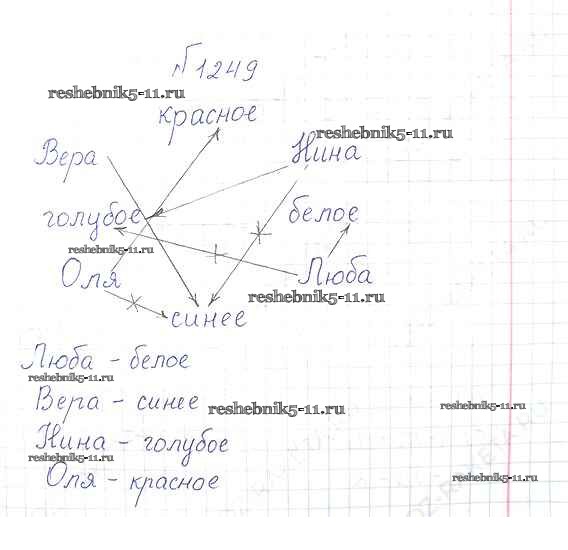 №1249
reshebnik5-11.ru
красное
reshebnik5-11.ru
Вера
Нина
голубое
белое
reshebnik5-11.ru
Оля
Люба
reshebnik5-11.ru
синее
Люба - белое
reshebnik5-11.ru
Вера - синее
reshebnik5-11.ru
reshebnik5-11.ru
Нина - голубое
reshebnik5-11.ru
Оля - красное
reshebnik5-11.ru